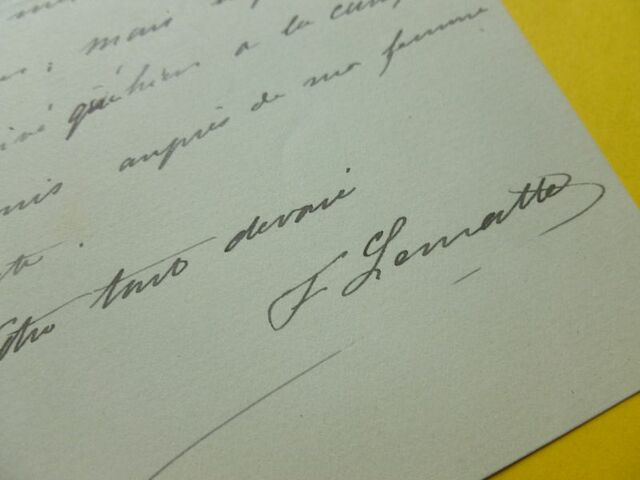 mais
qu'hier à la camp
auprès de ma femme
Votre tout dévoué
F Lematte